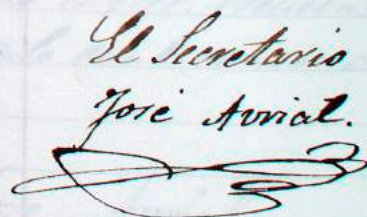 El Secretario
José Avrial.